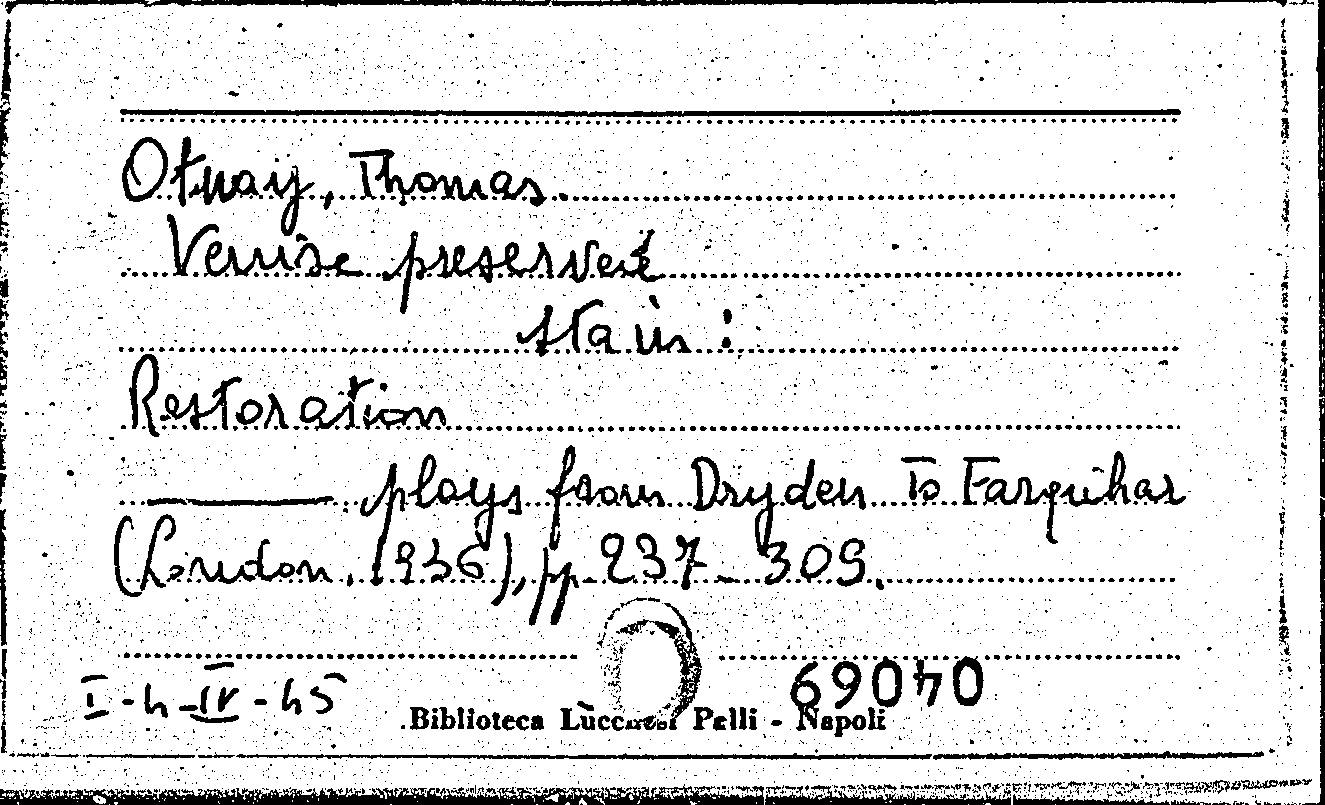 Otway, Thomas.
Venise preserved
sta in :
Restoration
——— plays from Dryden to Farquhar
(London, 1936), pp. 237-309.
I-4-IV-45
69040
Biblioteca Lucchesi Palli - Napoli